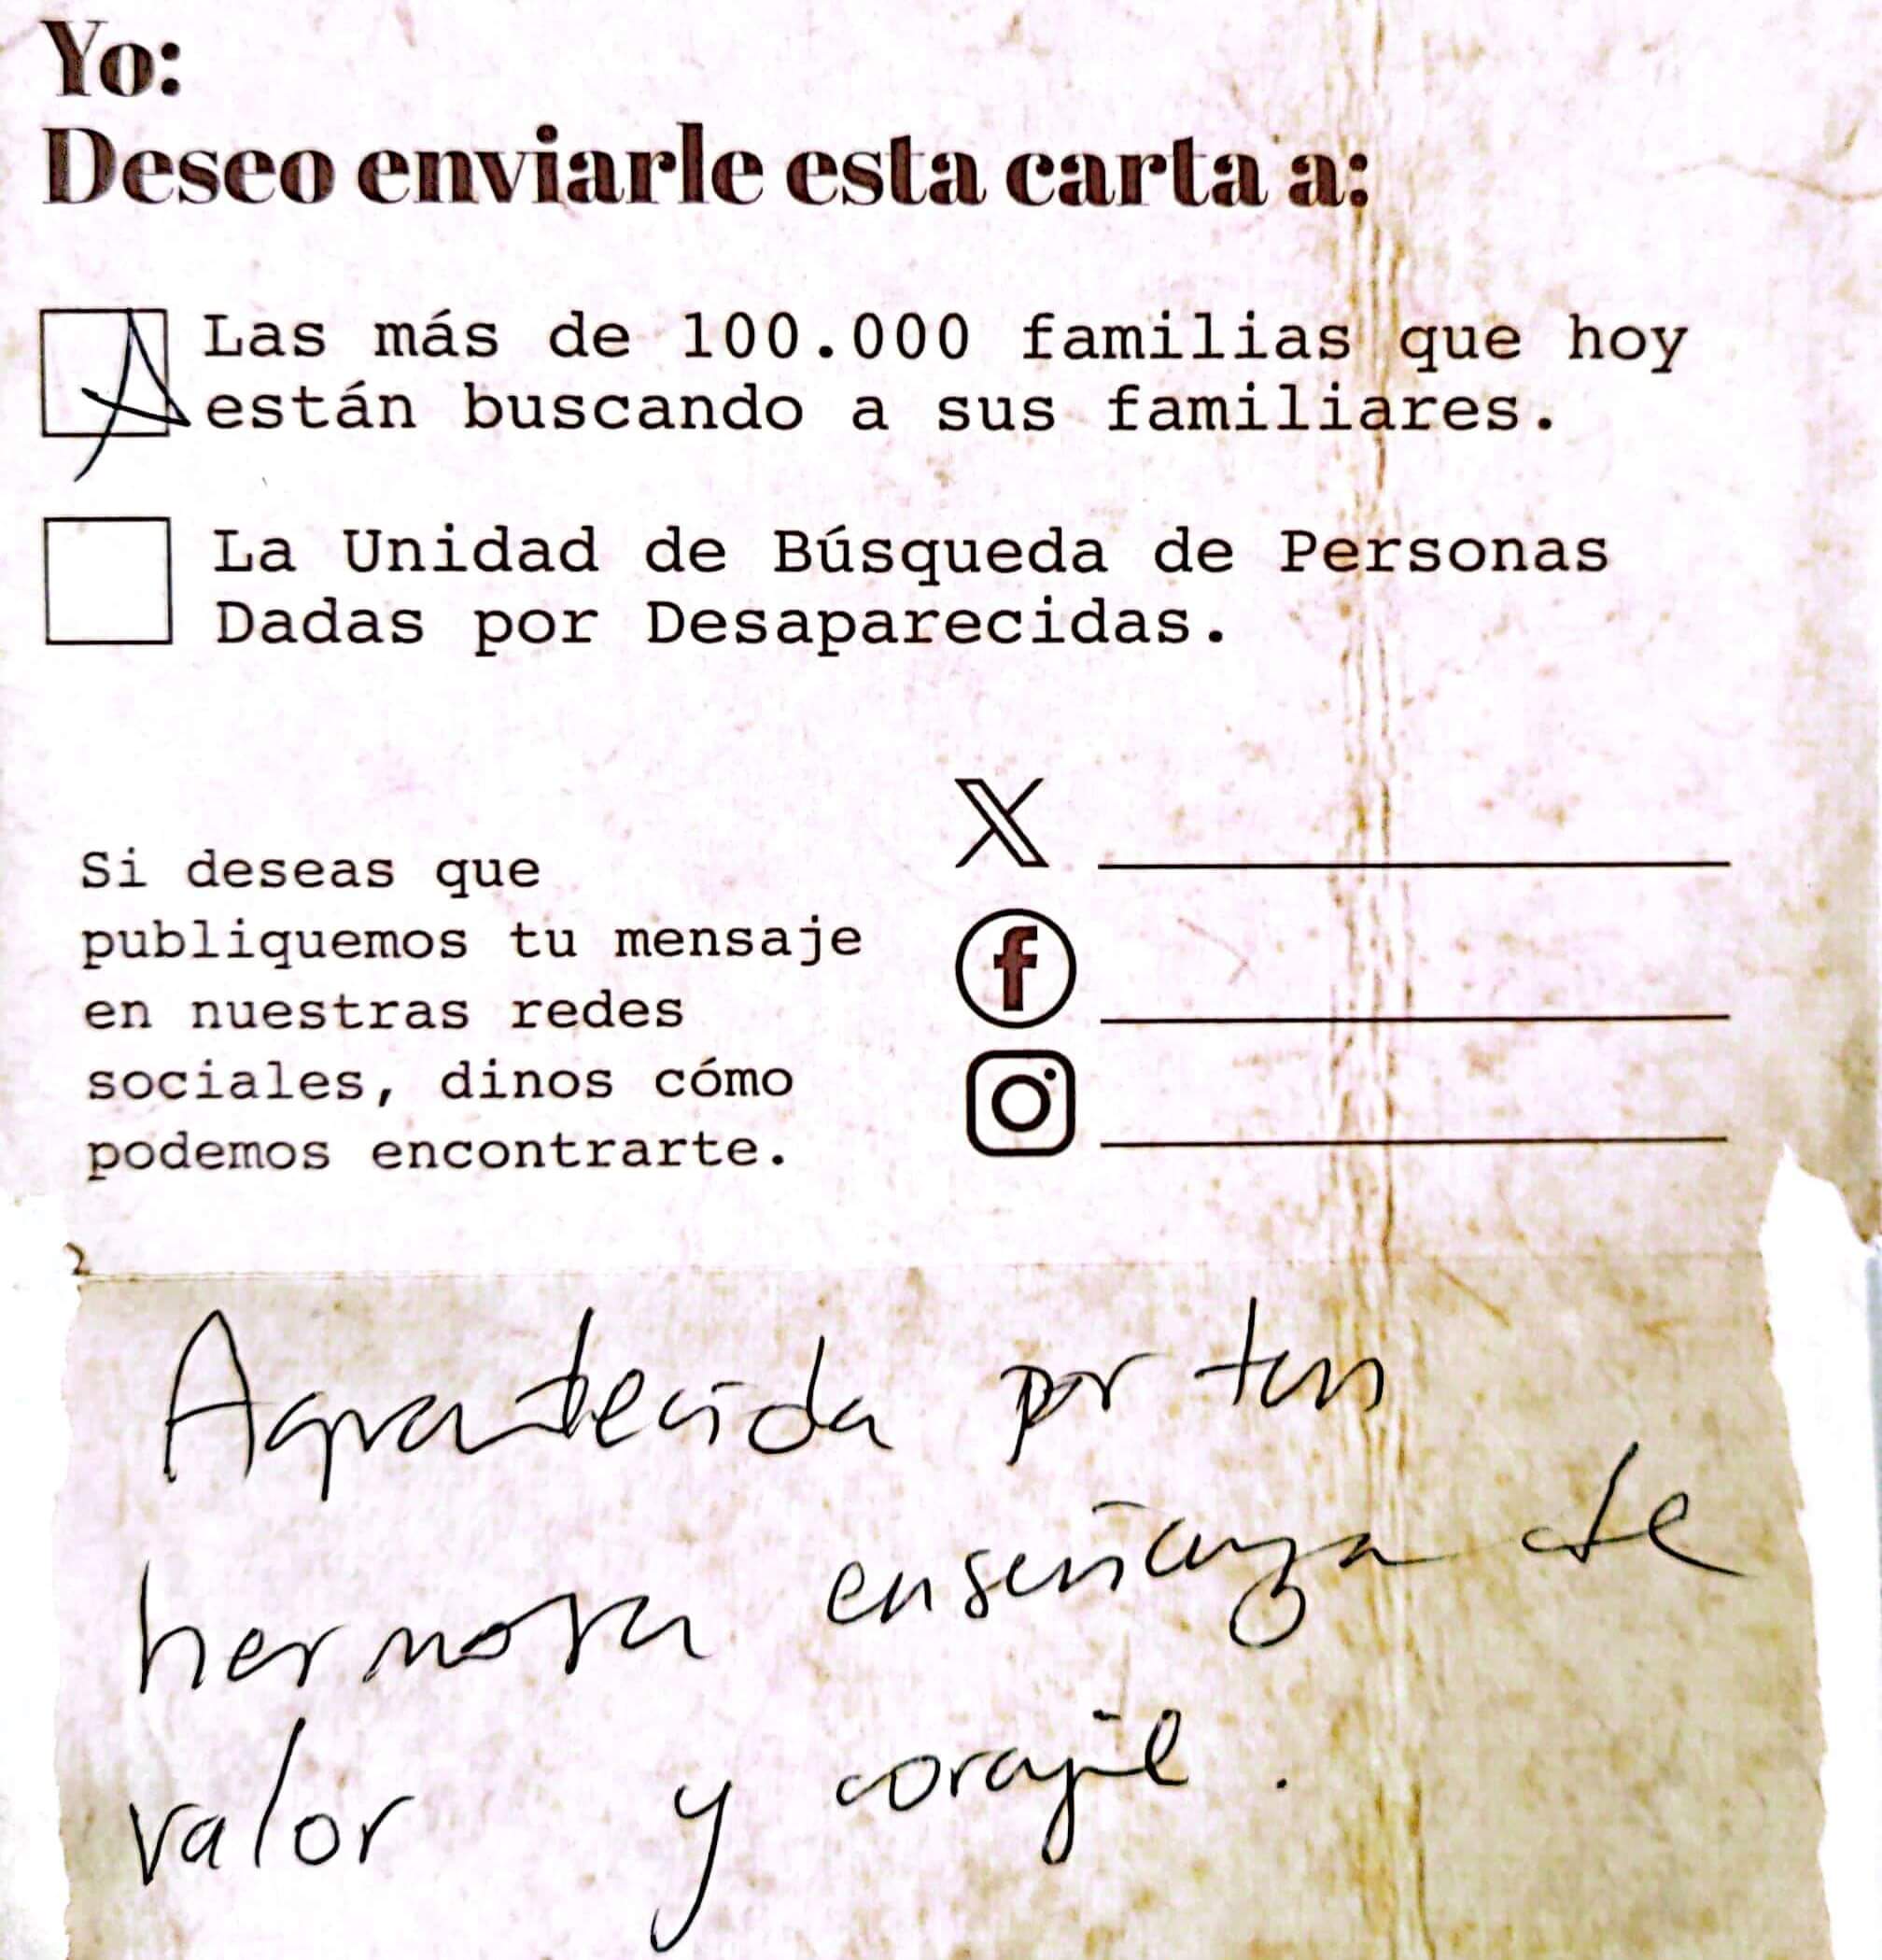 Yo:
Deseo enviarle esta carta a:
Las más de 100.000 familias que hoy
están buscando a sus familiares.
La Unidad de Búsqueda de Personas
Dadas por Desaparecidas.
Si deseas que
publiquemos tu mensaje
en nuestras redes
sociales, dinos cómo
podemos encontrarte.
Agradecida por tan
hermosa enseñanza de
valor y coraje.